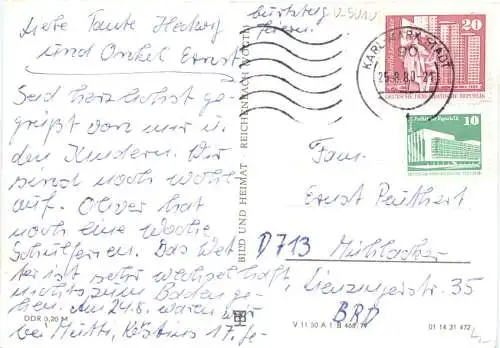 Liebe Tante Hedwig
und Onkel Ernst,
Seid herzlichst ge-
grüßt von mir u.
den Kindern. Wir
sind noch wohl-
auf. Oliver hat
noch eine Woche
Schulferien. Das Wet-
ter ist sehr wechselhaft,
nichts zum Baden ge-
hen. Am 24.8. waren wir
bei Mutti, Kerstins 17. Ge-
burtstag
feiern.
BILD UND HEIMAT REICHENBACH (VOGTL)
KARL-MARX-STADT
90
25.8.80-21
20
DEUTSCHE DEMOKRATISCHE REPUBLIK
Palast der Republik
10
DEUTSCHE DEMOKRATISCHE REPUBLIK
Fam.
Ernst
D 713 Mühlacker
Lienzingerstr. 35
BRD
DDR 0,20 M
V 11 50 A 1 B 468/79
01 14 31 472